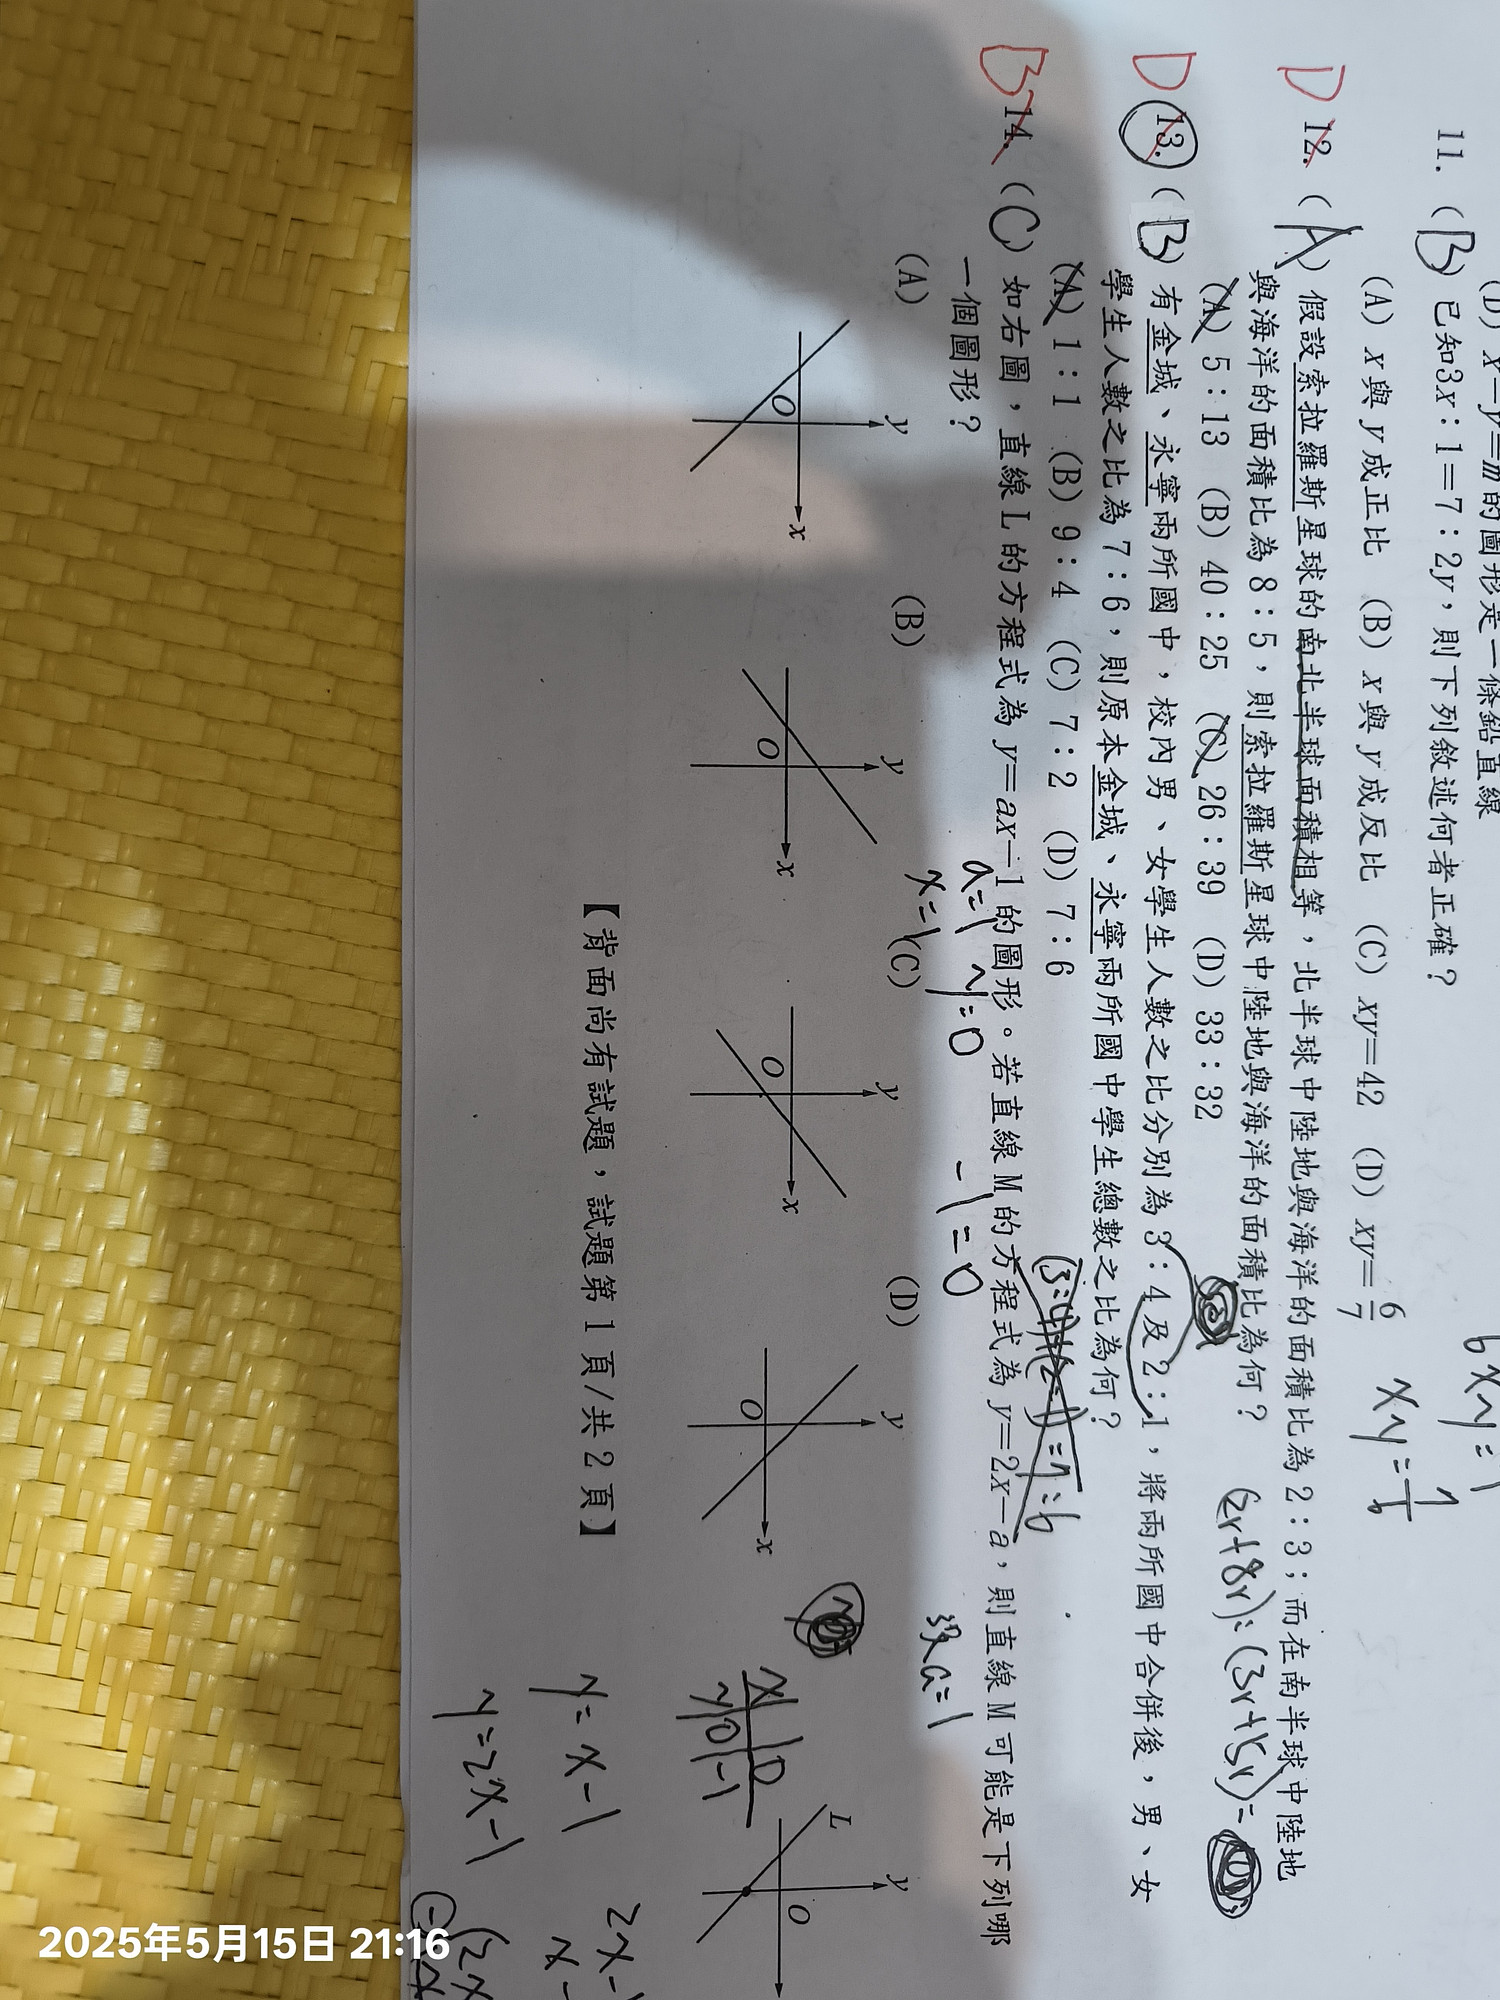 (D) x－y＝m的圖形是一條鉛直線
11. (B) 已知3x：1＝7：2y，則下列敘述何者正確？
(A) x與y成正比 (B) x與y成反比 (C) xy＝42 (D) xy＝6/7
6xy=7
xy=7/6
D 12. (A) 假設索拉羅斯星球的南北半球面積相等，北半球中陸地與海洋的面積比為2：3；而在南半球中陸地
與海洋的面積比為8：5，則索拉羅斯星球中陸地與海洋的面積比為何？
(2r+8r):(3r+5r)=
(A) 5：13 (B) 40：25 (C) 26：39 (D) 33：32
D 13. (B) 有金城、永寧兩所國中，校內男、女學生人數之比分別為3：4及2：1，將兩所國中合併後，男、女
學生人數之比為7：6，則原本金城、永寧兩所國中學生總數之比為何？
(A) 1：1 (B) 9：4 (C) 7：2 (D) 7：6
(3:4)+(2:1)=7:6
B 14. (C) 如右圖，直線L的方程式為y＝ax－1的圖形。若直線M的方程式為y＝2x－a，則直線M可能是下列哪
一個圖形？
a=1 y=0 -1=0
x=1
設a=1
(A) (B) (C) (D)
y O x
y O x
y O x
y O x
L y O
x 1 0
y 0 -1
y=x-1
y=2x-1
【背面尚有試題，試題第1頁/共2頁】
2025年5月15日 21:16